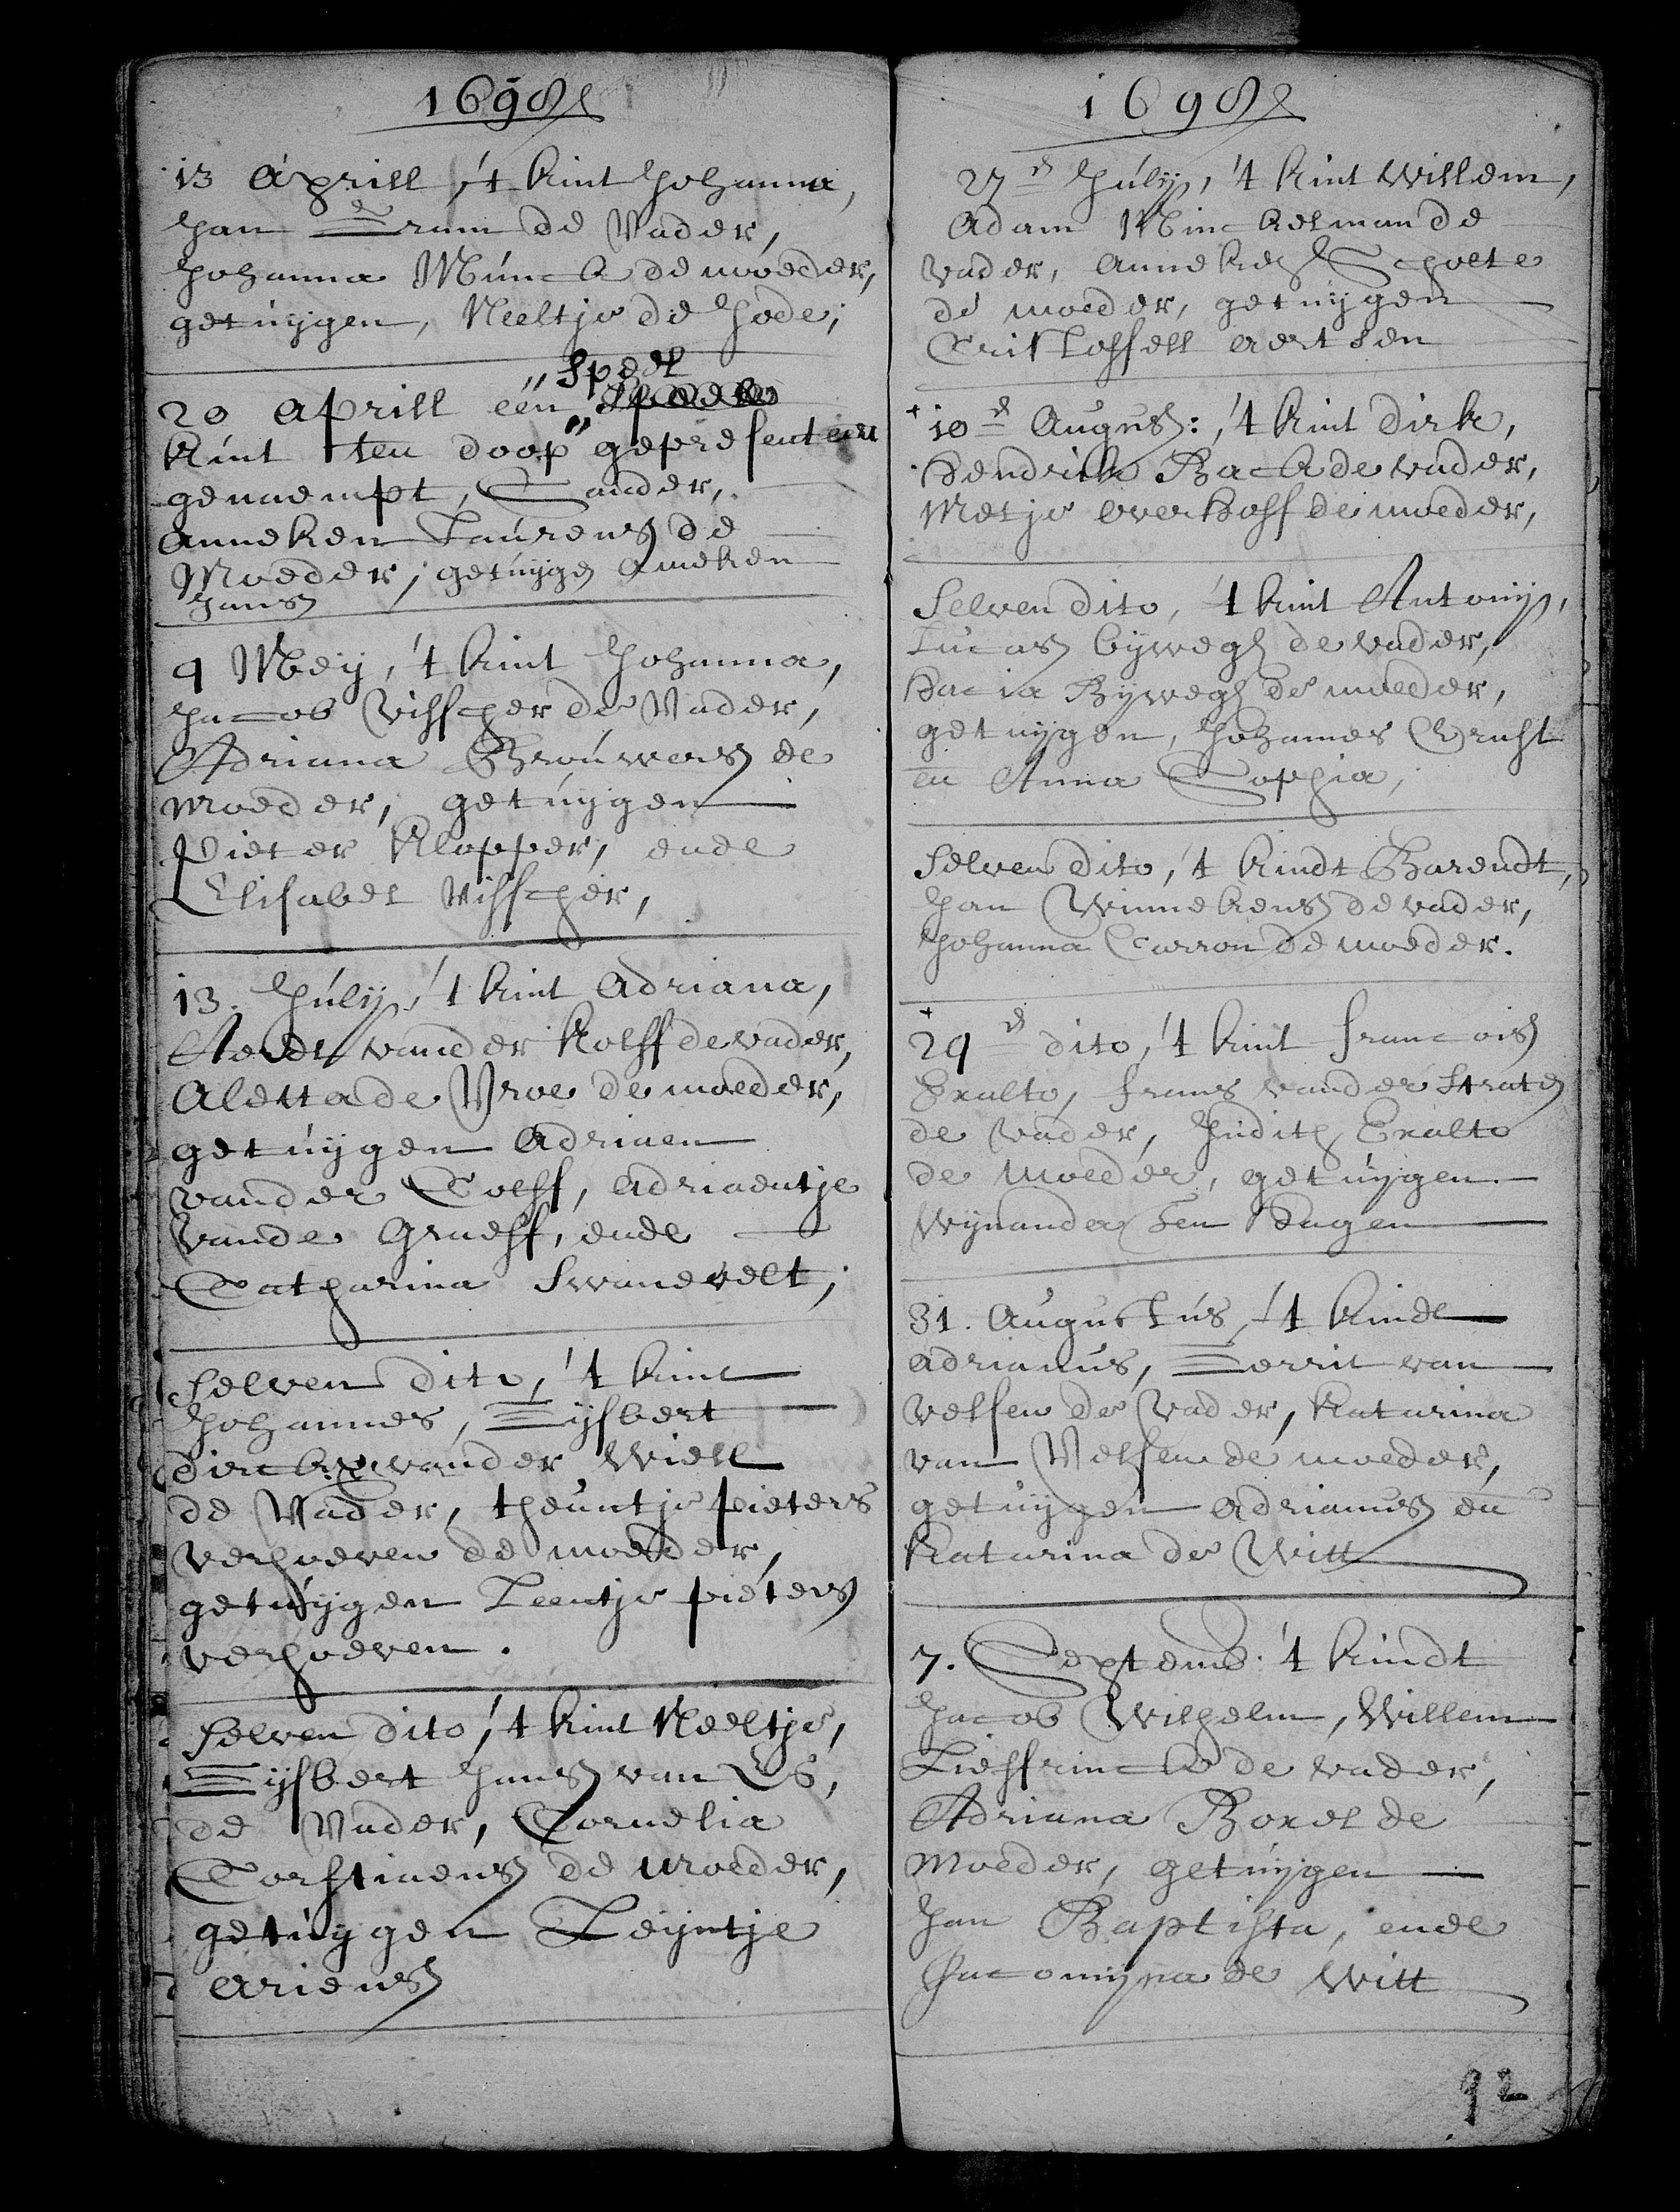 1698
13 Aprill, 't kint Johanna,
Jan Gram de Vader,
Johanna Munck de moeder,
getuijgen, Neeltje de Jode;
Speel
20 Aprill een
kint ten doop gepresenteert
genaempt, Sander,
Anneken Laurens de
Moeder; getuijgen Anneken
Jans
9 Meij, 't kint Johanna,
Jacob Visscher de Vader,
Adriana Brouwers de
moeder, getuijgen
Pieter Klopper, ende
Elisabet Visscher,
13. Julij, 't kint Adriana,
Aerdt vander Kolff de vader,
Aletta de Vroe de moeder,
getuijgen Adriaen
vander Colff, Adriaentje
vande Graeff, ende
Catharina Swanevelt;
Selven dito, 't kint
Johannes, Gijsbert
Dircks vander Wiell
de Vader, Theuntje Pieters
verhoeven de moeder,
getuijgen Leentje Pieters
verhoeven.
Selven dito, 't kint Neeltje,
Gijsbert Jans van Es,
de Vader, Cornelia
Corstiaens de moeder,
getuijgen Leijntje
Ariens
1698
27 Julij, 't kint Willem,
Adam Minckelman de
vader, Anneke Schoete
de moeder, getuijgen
Cristoffell Aertsen
10 Augus: 't kint Dirk,
Hendrick Back de vader,
Metje Overhoff de moeder,
Selven dito, 't kint Antonij,
Lucas Bijwegh de vader,
Bijwegh de moeder,
getuijgen, Johannes Ernst
en Anna Sophia,
Selven dito, 't kindt Barendt,
Jan Winnekens de vader,
Johanna Carron de moeder.
29 dito, 't kint Francois
Exalto, Frans vander Straten
de vader, Judith Exalto
de moeder, getuijgen
Wijnanda ten Hagen
31. Augustus, 't kindt
Adrianus, Gerrit van
Velsen de Vader, Katarina
van Velsen de moeder,
getuijgen Adrianus en
Katarina de Witt
7. Septemb. 't kindt
Jacob Wilhelm, Willem
Lieffrinck de vader,
Adriana Boxel de
Moeder, getuijgen
Jan Baptista, ende
Jacomijna de Witt
92